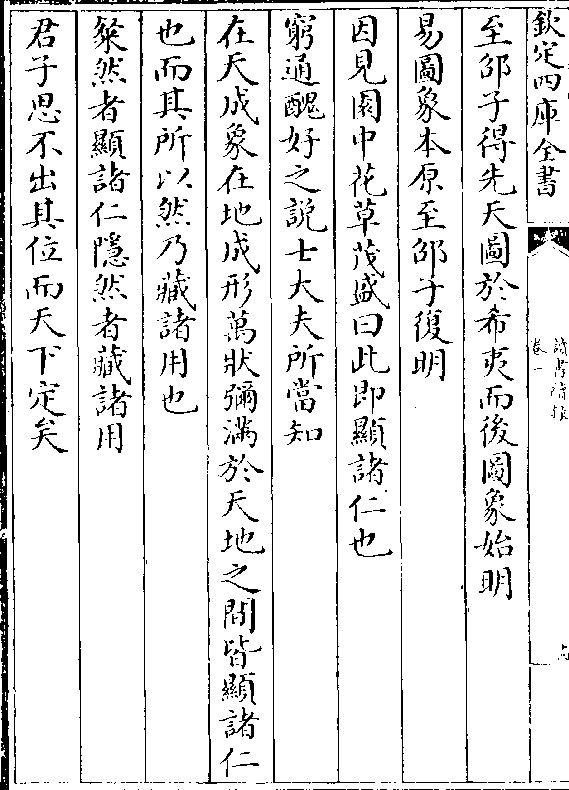 欽定四庫全書
卷一
至邵子得先天圖於希夷而後圖象始明
易圖象本原至邵子復明
因見園中花草茂盛曰此即顯諸仁也
窮通醜好之說士大夫所當知
在天成象在地成形萬狀彌滿於天地之間皆顯諸仁
也而其所以然乃藏諸用也
粲然者顯諸仁隱然者藏諸用
君子思不出其位而天下定矣